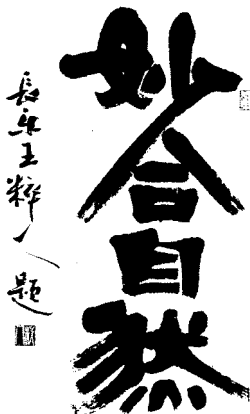 妙合自然
長乐王粹人題